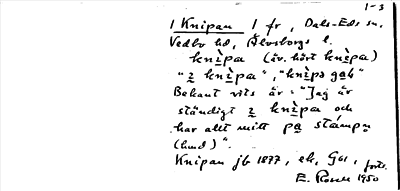 1-3
1 Knipan 1 fr, Dals-Eds sn.
Vedbo hd, Älvsborgs l.
knìpa (äv. hört knèpa)
"i knìpa",
Bekant vits är: "Jag är
ständigt i knìpa och
har allt mitt på stámpen
(hund)".
Knipan jb 1877, ek, G61, forts.
E. Rosell 1950